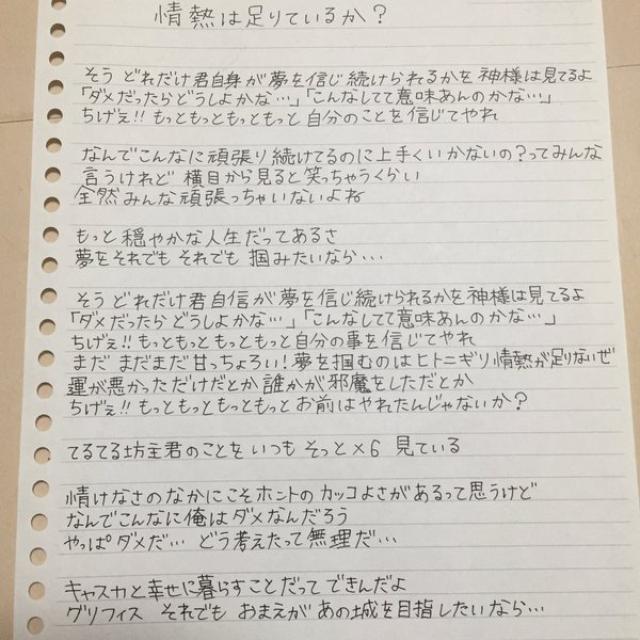 情熱は足りているか？
そう どれだけ君自身が夢を信じ続けられるかを神様は見てるよ
「ダメだったらどうしよかな…」「こんなしてて意味あんのかな…」
ちげぇ!! もっともっともっともっと 自分のことを信じてやれ
なんでこんなに頑張り続けてるのに上手くいかないの？ってみんな
言うけれど 横目から見ると笑っちゃうくらい
全然みんな頑張っちゃいないよね
もっと穏やかな人生だってあるさ
夢をそれでも それでも 掴みたいなら…
そう どれだけ君自信が夢を信じ続けられるかを神様は見てるよ
「ダメだったら どうしよかな…」「こんなしてて意味あんのかな…」
ちげぇ!! もっともっともっともっと自分の事を信じてやれ
まだ まだまだ甘っちょろい！夢を掴むのはヒトニギリ 情熱が足りないぜ
運が悪かっただけだとか 誰かが邪魔をしただとか
ちげぇ!! もっともっともっともっと お前はやれたんじゃないか？
てるてる坊主君のことをいつも そっと×6 見ている
情けなさのなかにこそホントの カッコよさがあるって思うけど
なんでこんなに俺はダメなんだろう
やっぱダメだ… どう考えたって無理だ…
キャスカと幸せに暮らすことだって できんだよ
グリフィス それでも おまえが あの城を目指したいなら…